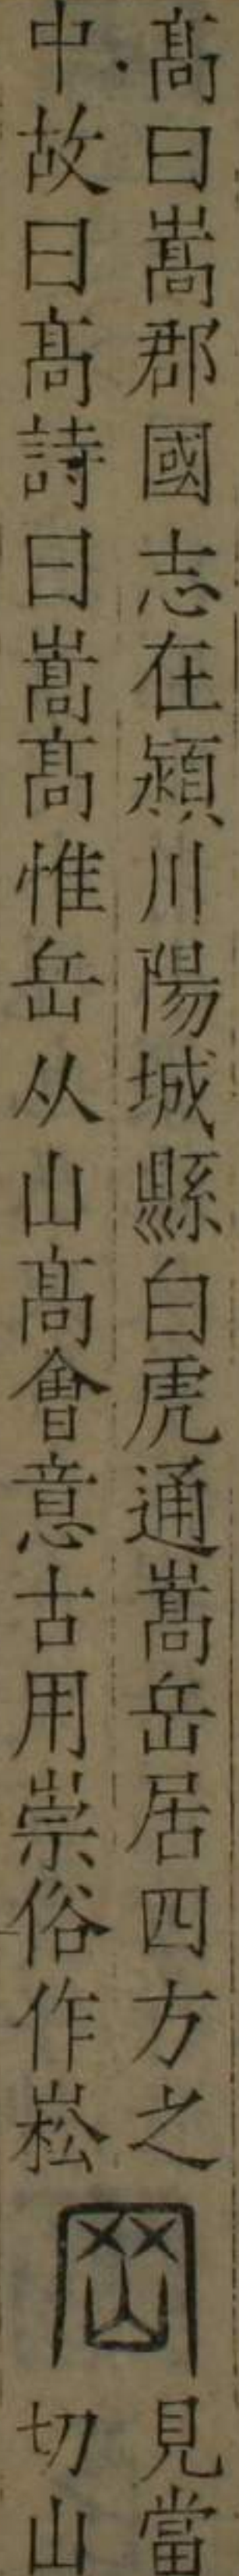 髙曰嵩郡國志在潁川陽城縣白虎通嵩岳居四方之
中故曰髙詩曰嵩髙惟岳从山髙會意古用崇俗作崧
𦉪
見當
切山